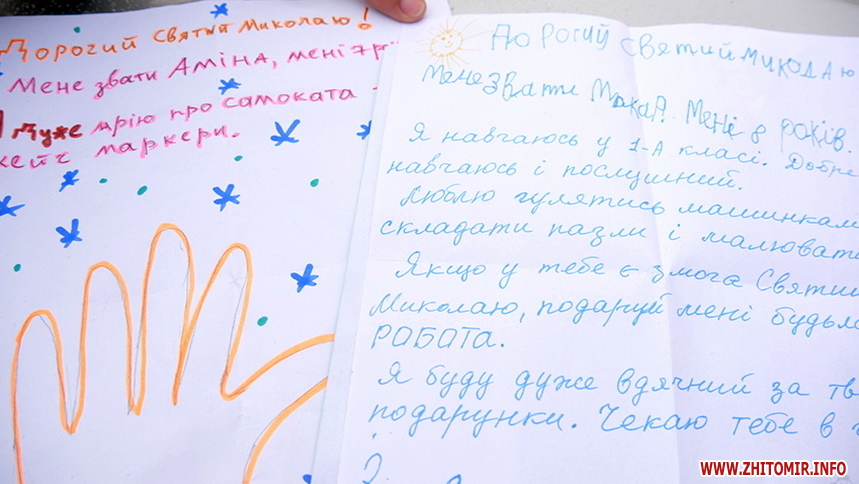 Дорогий Святий Миколаю!
Мене звати Аміна, мені 7 рі
Дуже мрію про самоката
кетч маркери.
Дорогий святий Миколаю
Мене звати Макар. Мені 8 років.
Я навчаюсь у 1-А класі. Добре
навчаюсь і послушний.
Люблю гулятись машинкам
складати пазли і малювати
Якщо у тебе є змога Святий
Миколаю, подаруй мені будьла
РОБОТА.
Я буду дуже вдячний за тв
подарунки. Чекаю тебе в г
WWW.ZHITOMIR.INFO